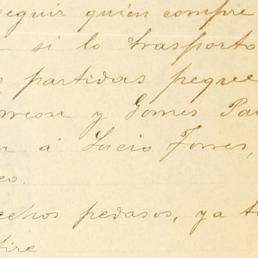 seguir quien compre
si lo trasporto
partidas peque
y Gomes Pa
á Lucio Torres,
pedasos, ya t
tire